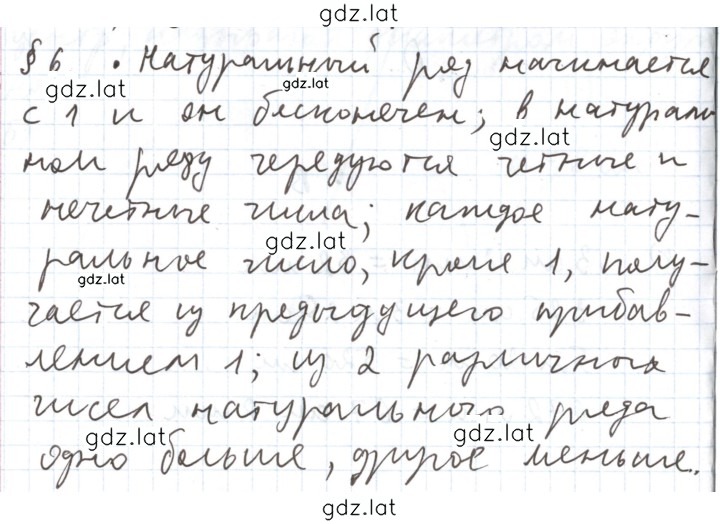 gdz.lat
§ 6 • Натуральный ряд начинается
gdz.lat gdz.lat
с 1 и он бесконечен; в натураль
gdz.lat
ном ряду чередуются четные и
нечетные числа; каждое нату-
gdz.lat
ральное число, кроме 1, полу-
gdz.lat
чается из предыдущего прибав-
лением 1; из 2 различных
чисел натурального ряда
gdz.lat gdz.lat
одно больше, другое меньше.
gdz.lat